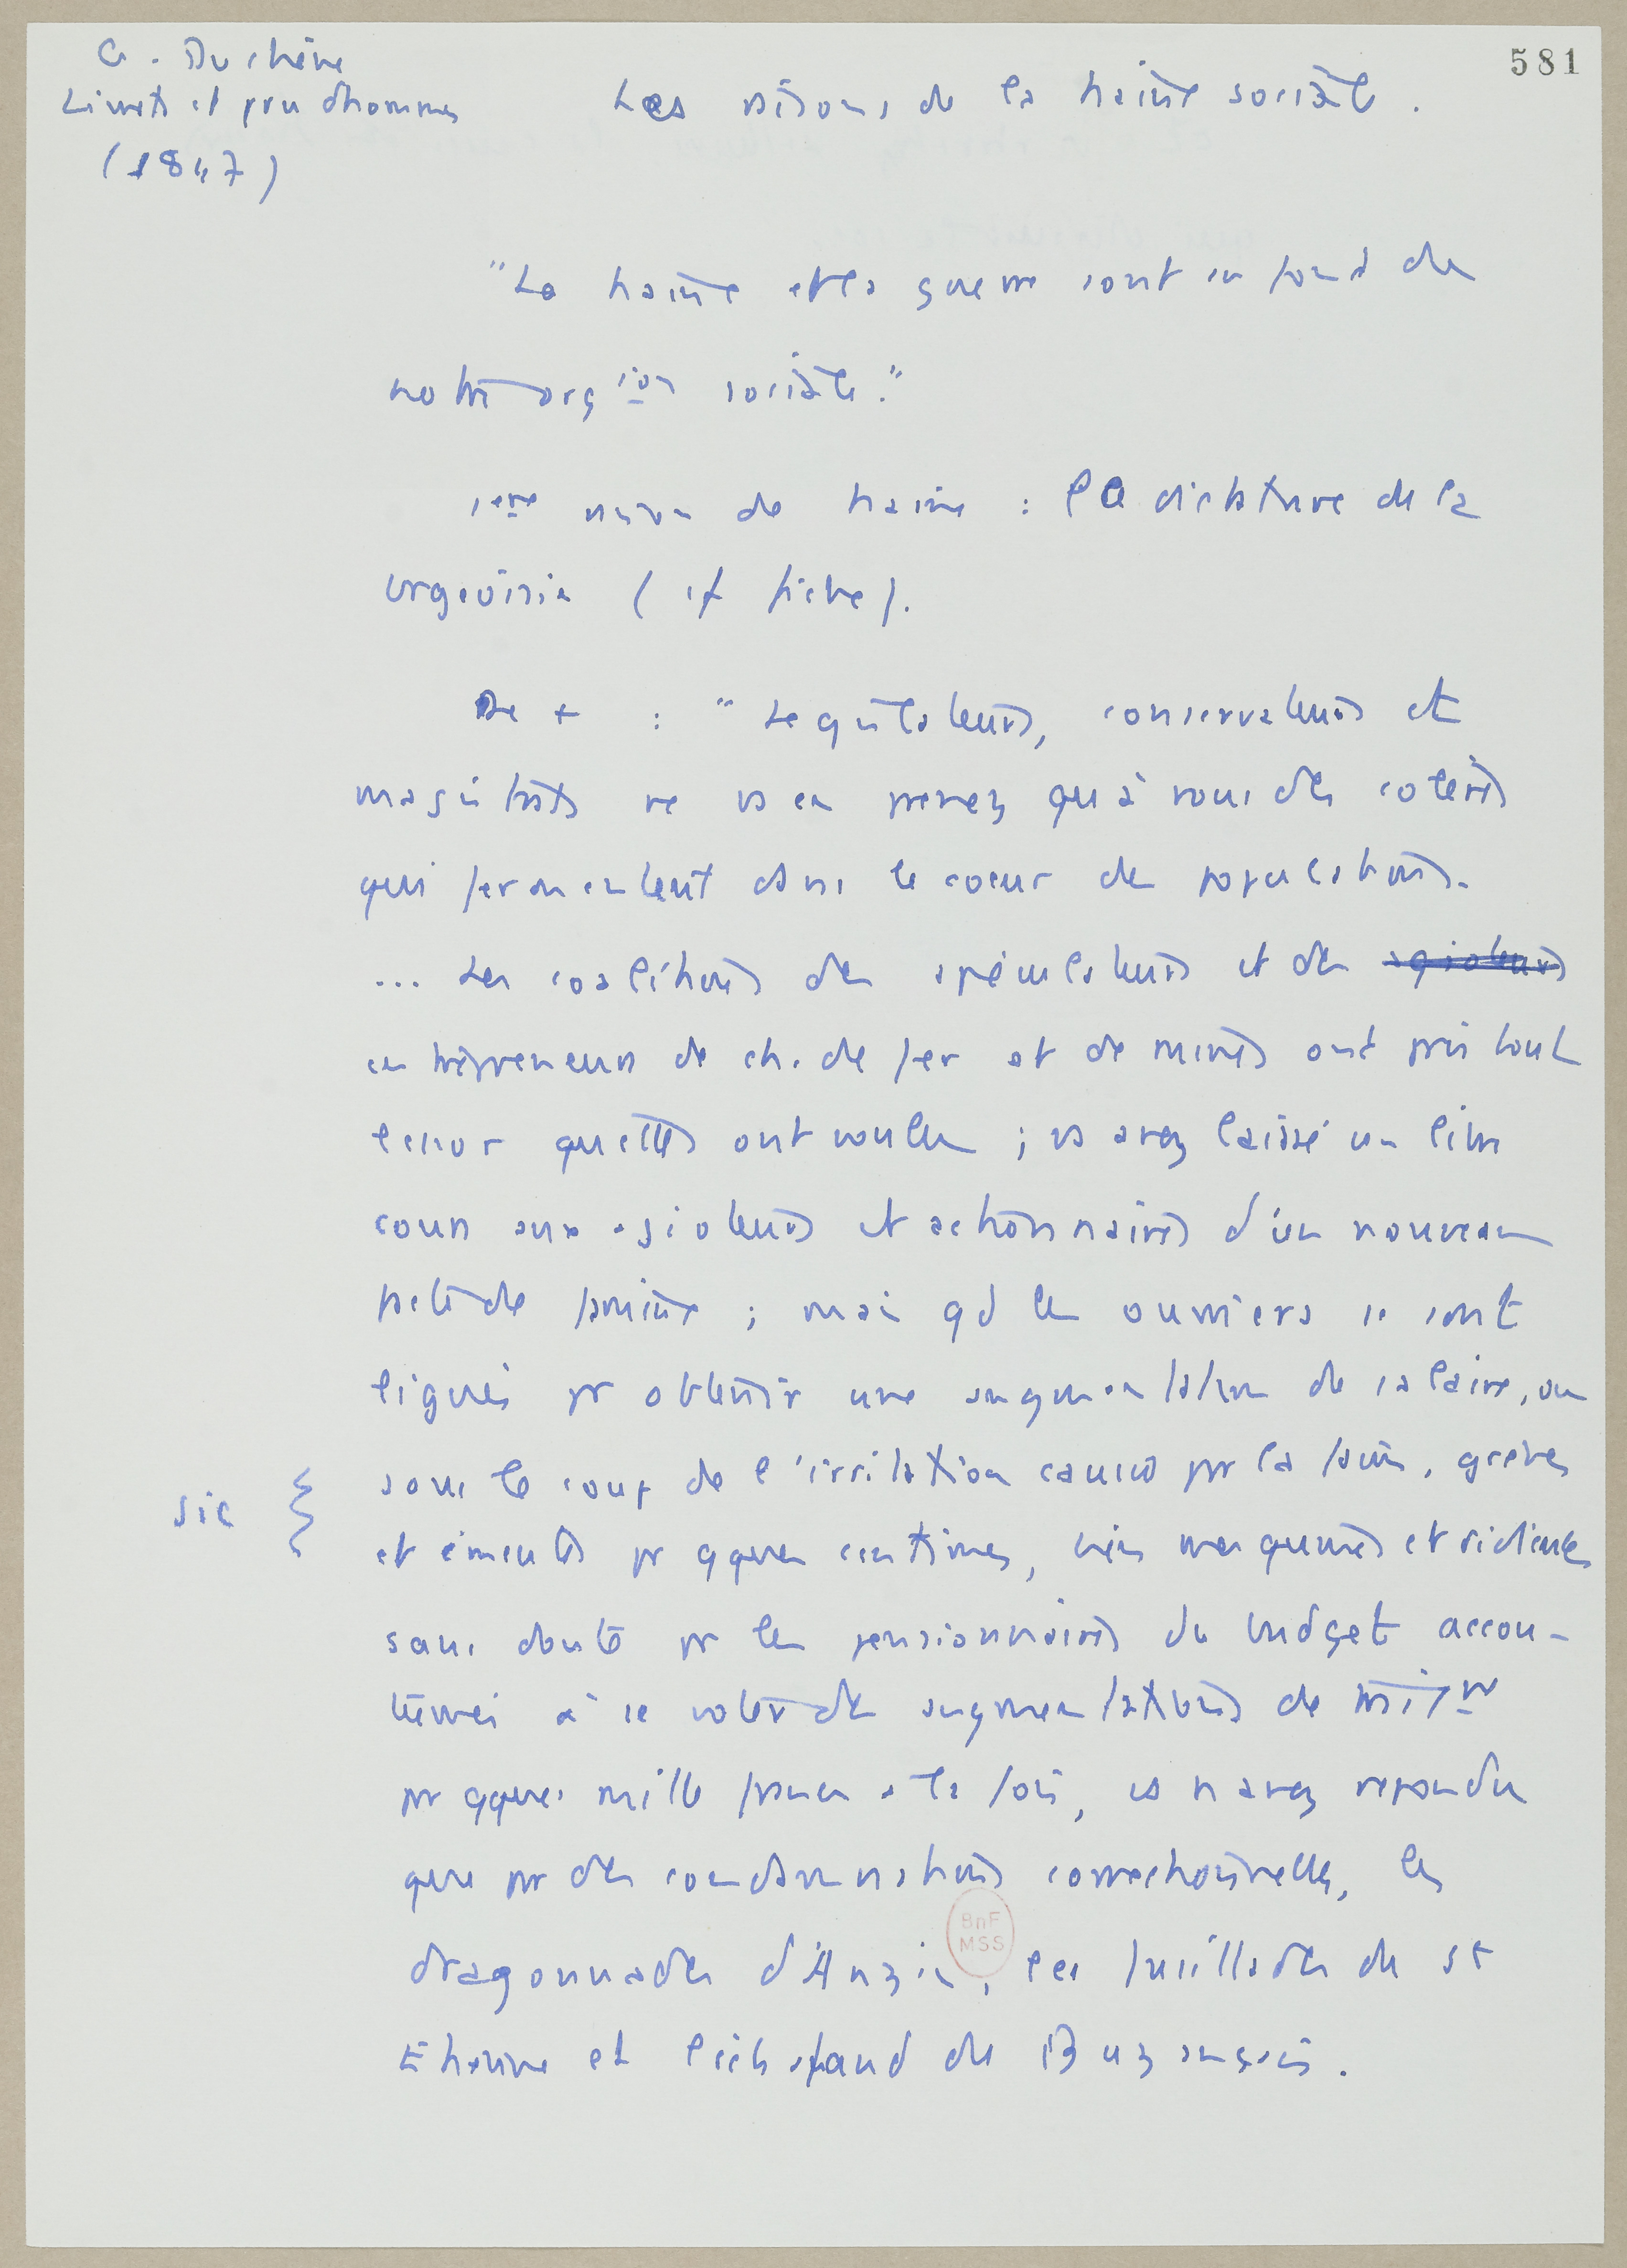 G. Duchêne
Livrets et prudhommes
(1847)
581
Les raisons de la haine sociale.
"La haine et la guerre sont au fond de
notre org ion sociale."
1ere raison de haine : la dictature de la
brgeoisie (cf fiche).
De + : " Législateurs, conservateurs et
magistrats ne vs en prenez qu'à vous des colères
qui fermentent dans le coeur des populations.
... Les coalitions des spéculateurs et des agioteurs
entrepreneurs de ch. de fer et de mines ont pris tout
l'essor qu'elles ont voulu ; vs avez laissé un libre
cours aux agioteurs et actionnaires d'un nouveau
pacte de famine ; mais qd les ouvriers se sont
ligués pr obtenir une augmentation de salaire, ou
sous le coup de l'irritation causée par la faim, grèves
sic
et émeutes pr qques centimes, bien mesquines et ridicules
sans doute pr les pensionnaires du budget accou-
tumés à se voter des augmentations de trait nt
par qques mille francs à la fois, vs n'avez répondu
que par des condamnations correctionnelles, les
dragonnades d'Anzin, les fusillades de St
Etienne et l'échafaud de Buzançais.
BnF
MSS